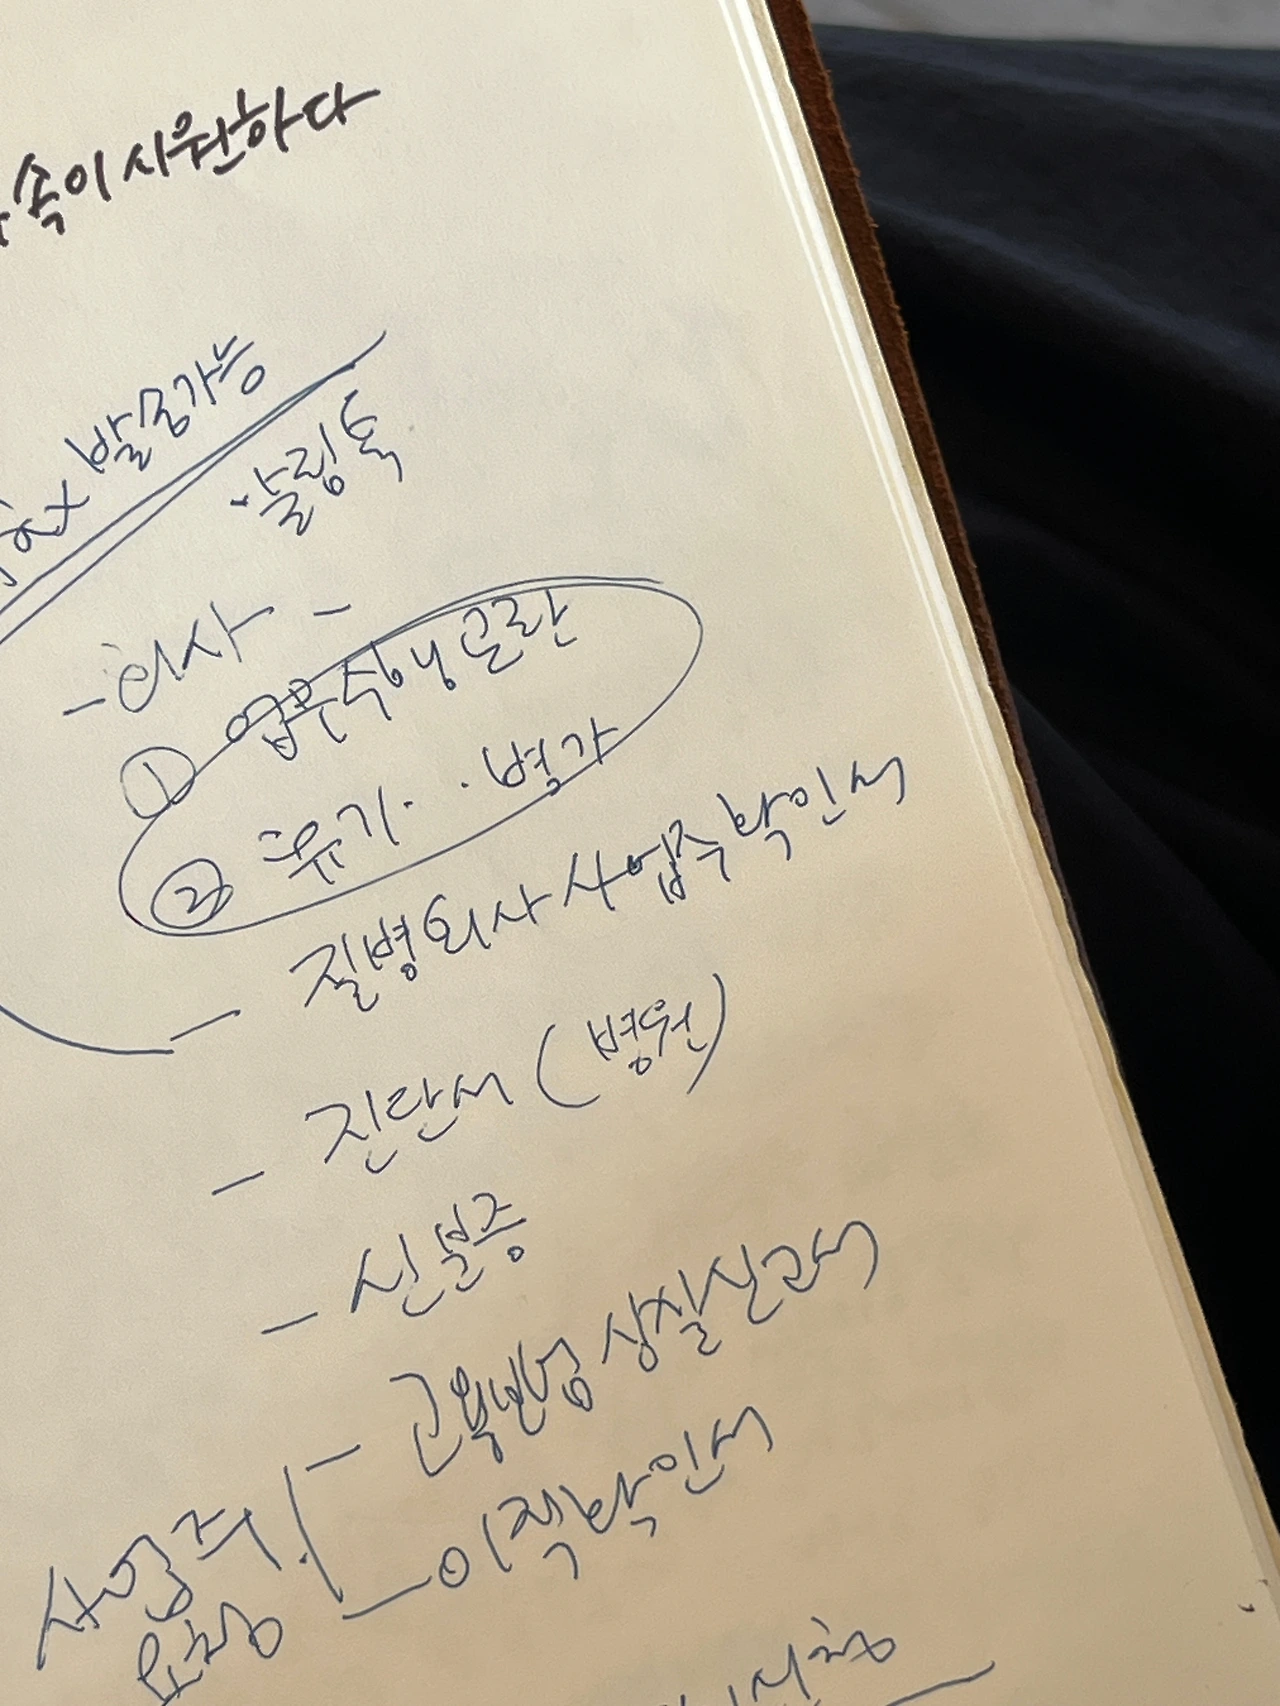 속이 시원하다
fax 발송가능
알림톡
- 회사 -
① 업무수행곤란
② 휴가·병가
- 질병퇴사 사업주확인서
- 진단서 (병원)
- 신분증
- 고용보험 상실신고서
사업주 요청
- 이직확인서
신청